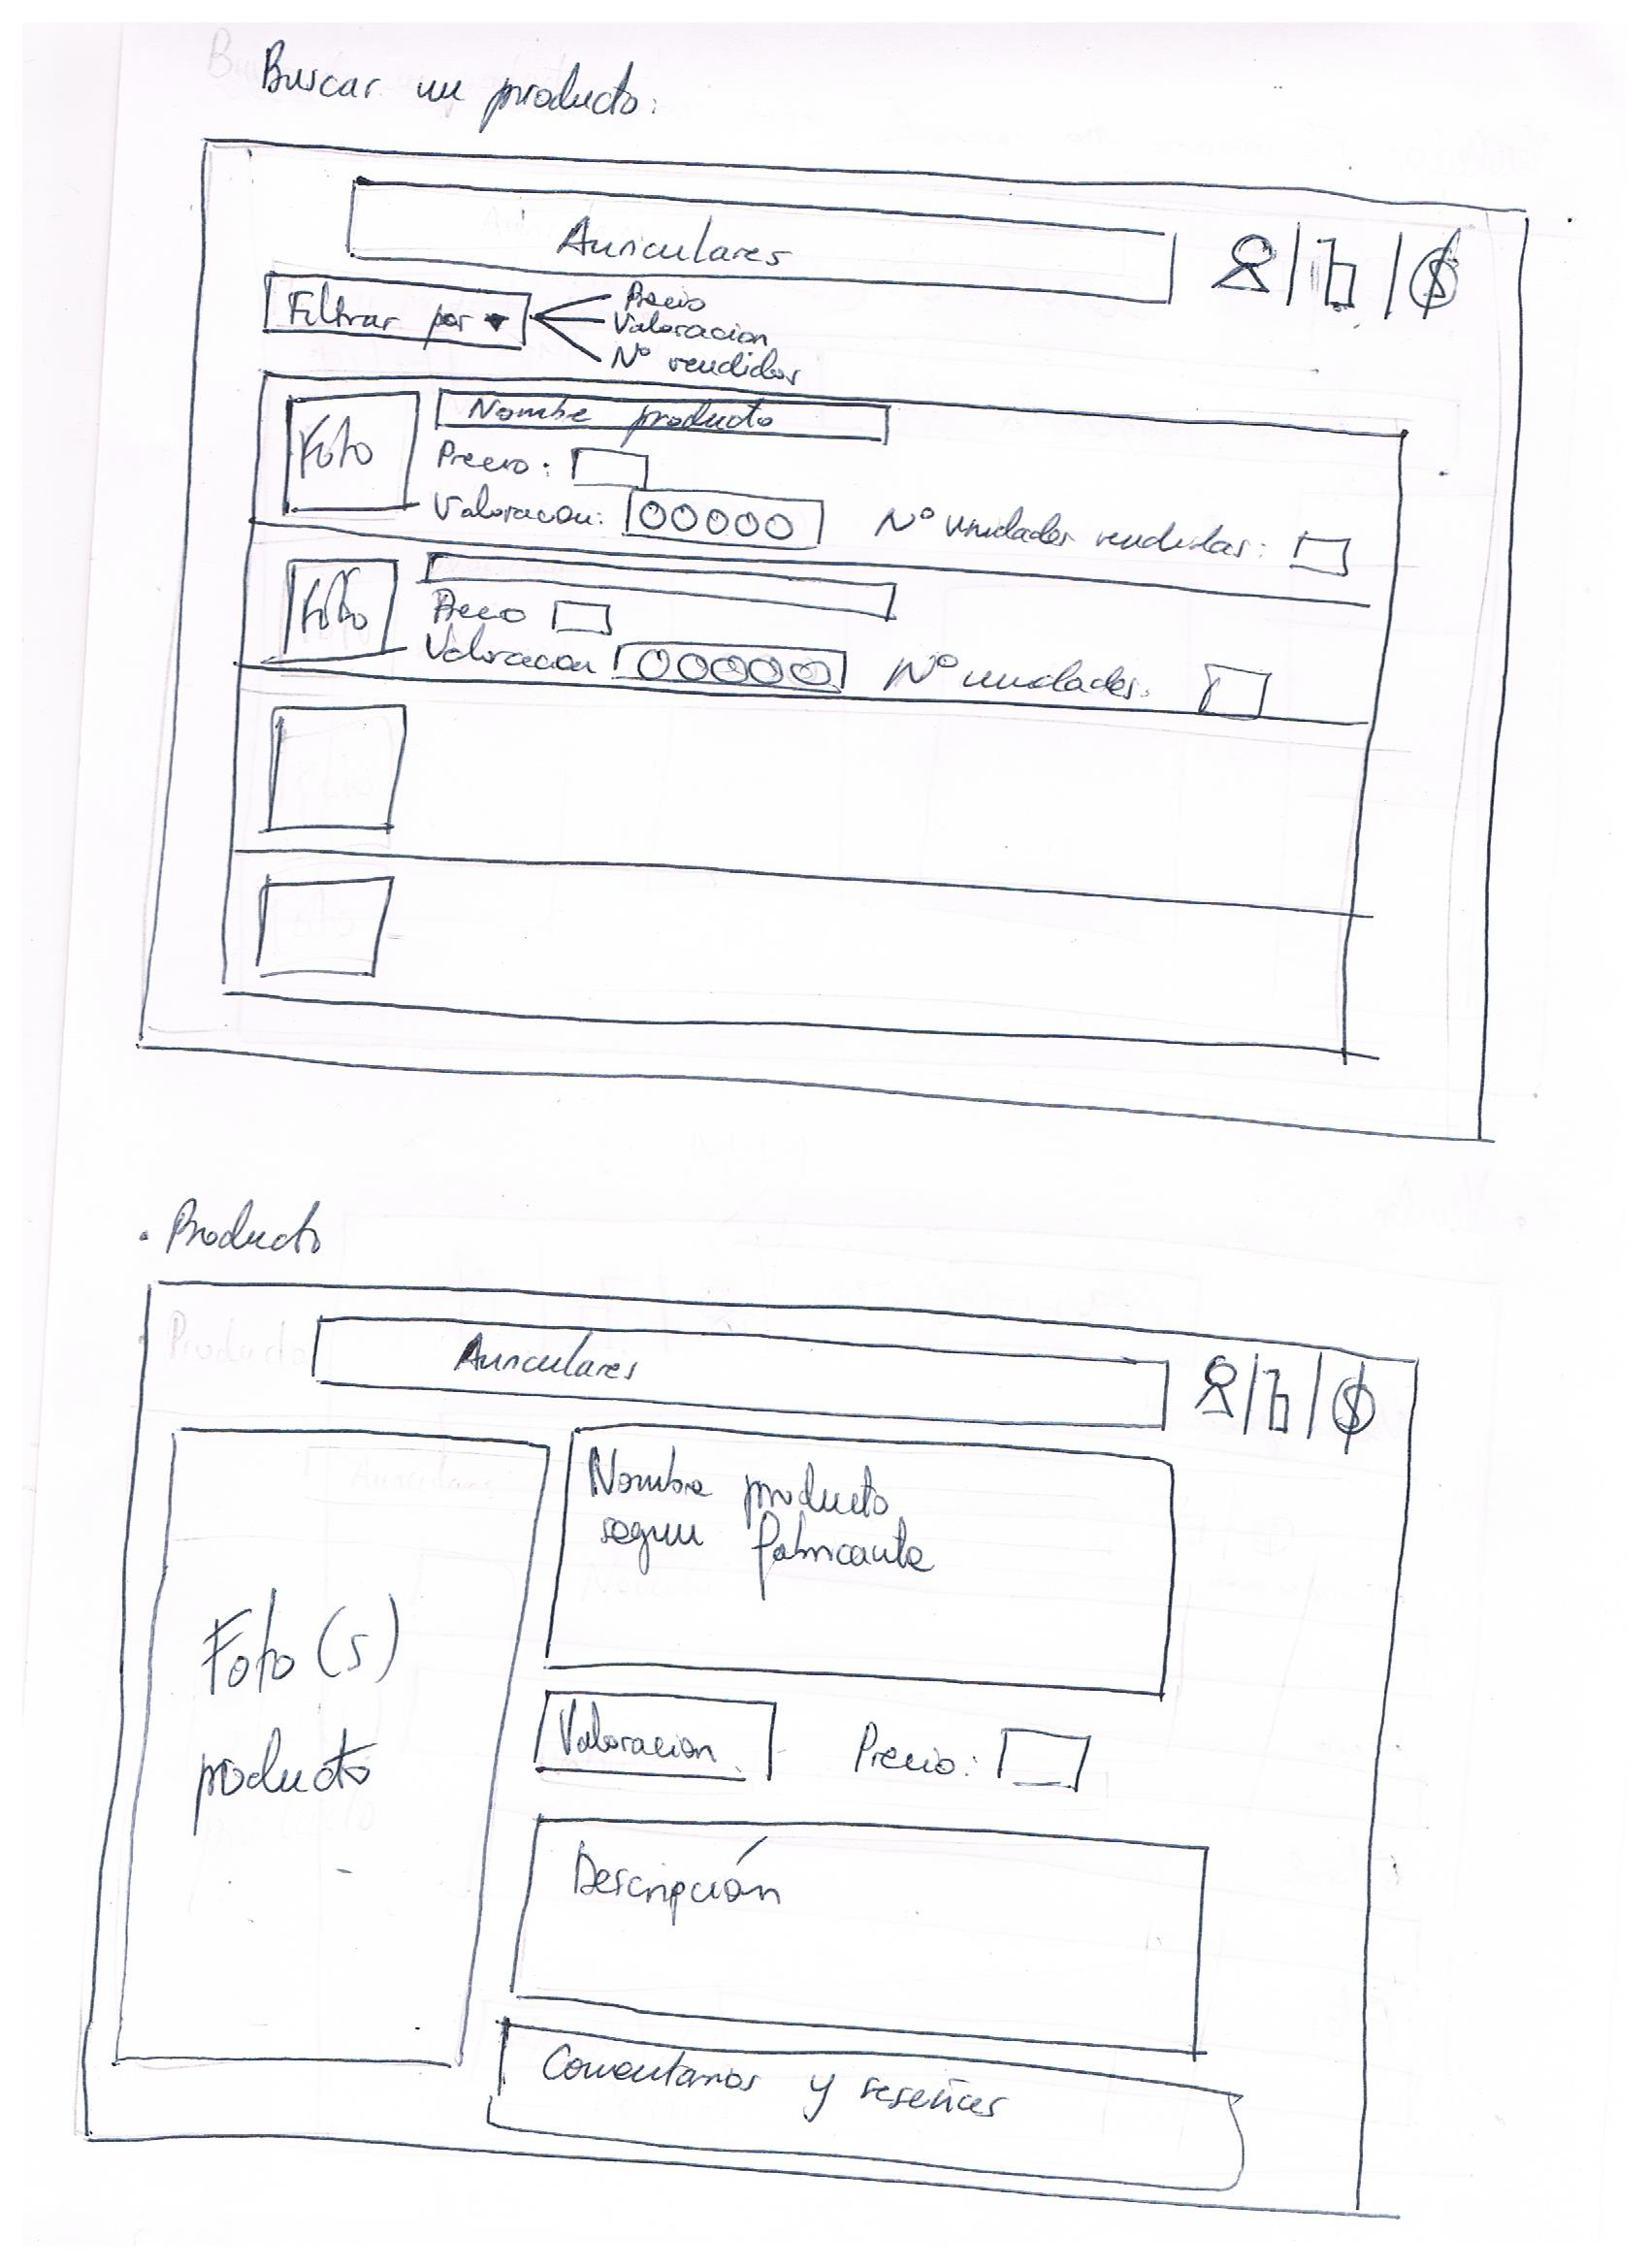 Buscar un producto:
Auriculares
Filtrar por
Precio
Valoracion
Nº vendidos
Foto
Nombre producto
Precio:
Valoracion:
Nº unidades vendidas:
Foto
Precio
Valoracion
Nº unidades:
. Producto
Auriculares
Nombre producto
segun fabricante
Foto(s)
producto
Valoracion
Precio:
Descripción
Comentarios y reseñas